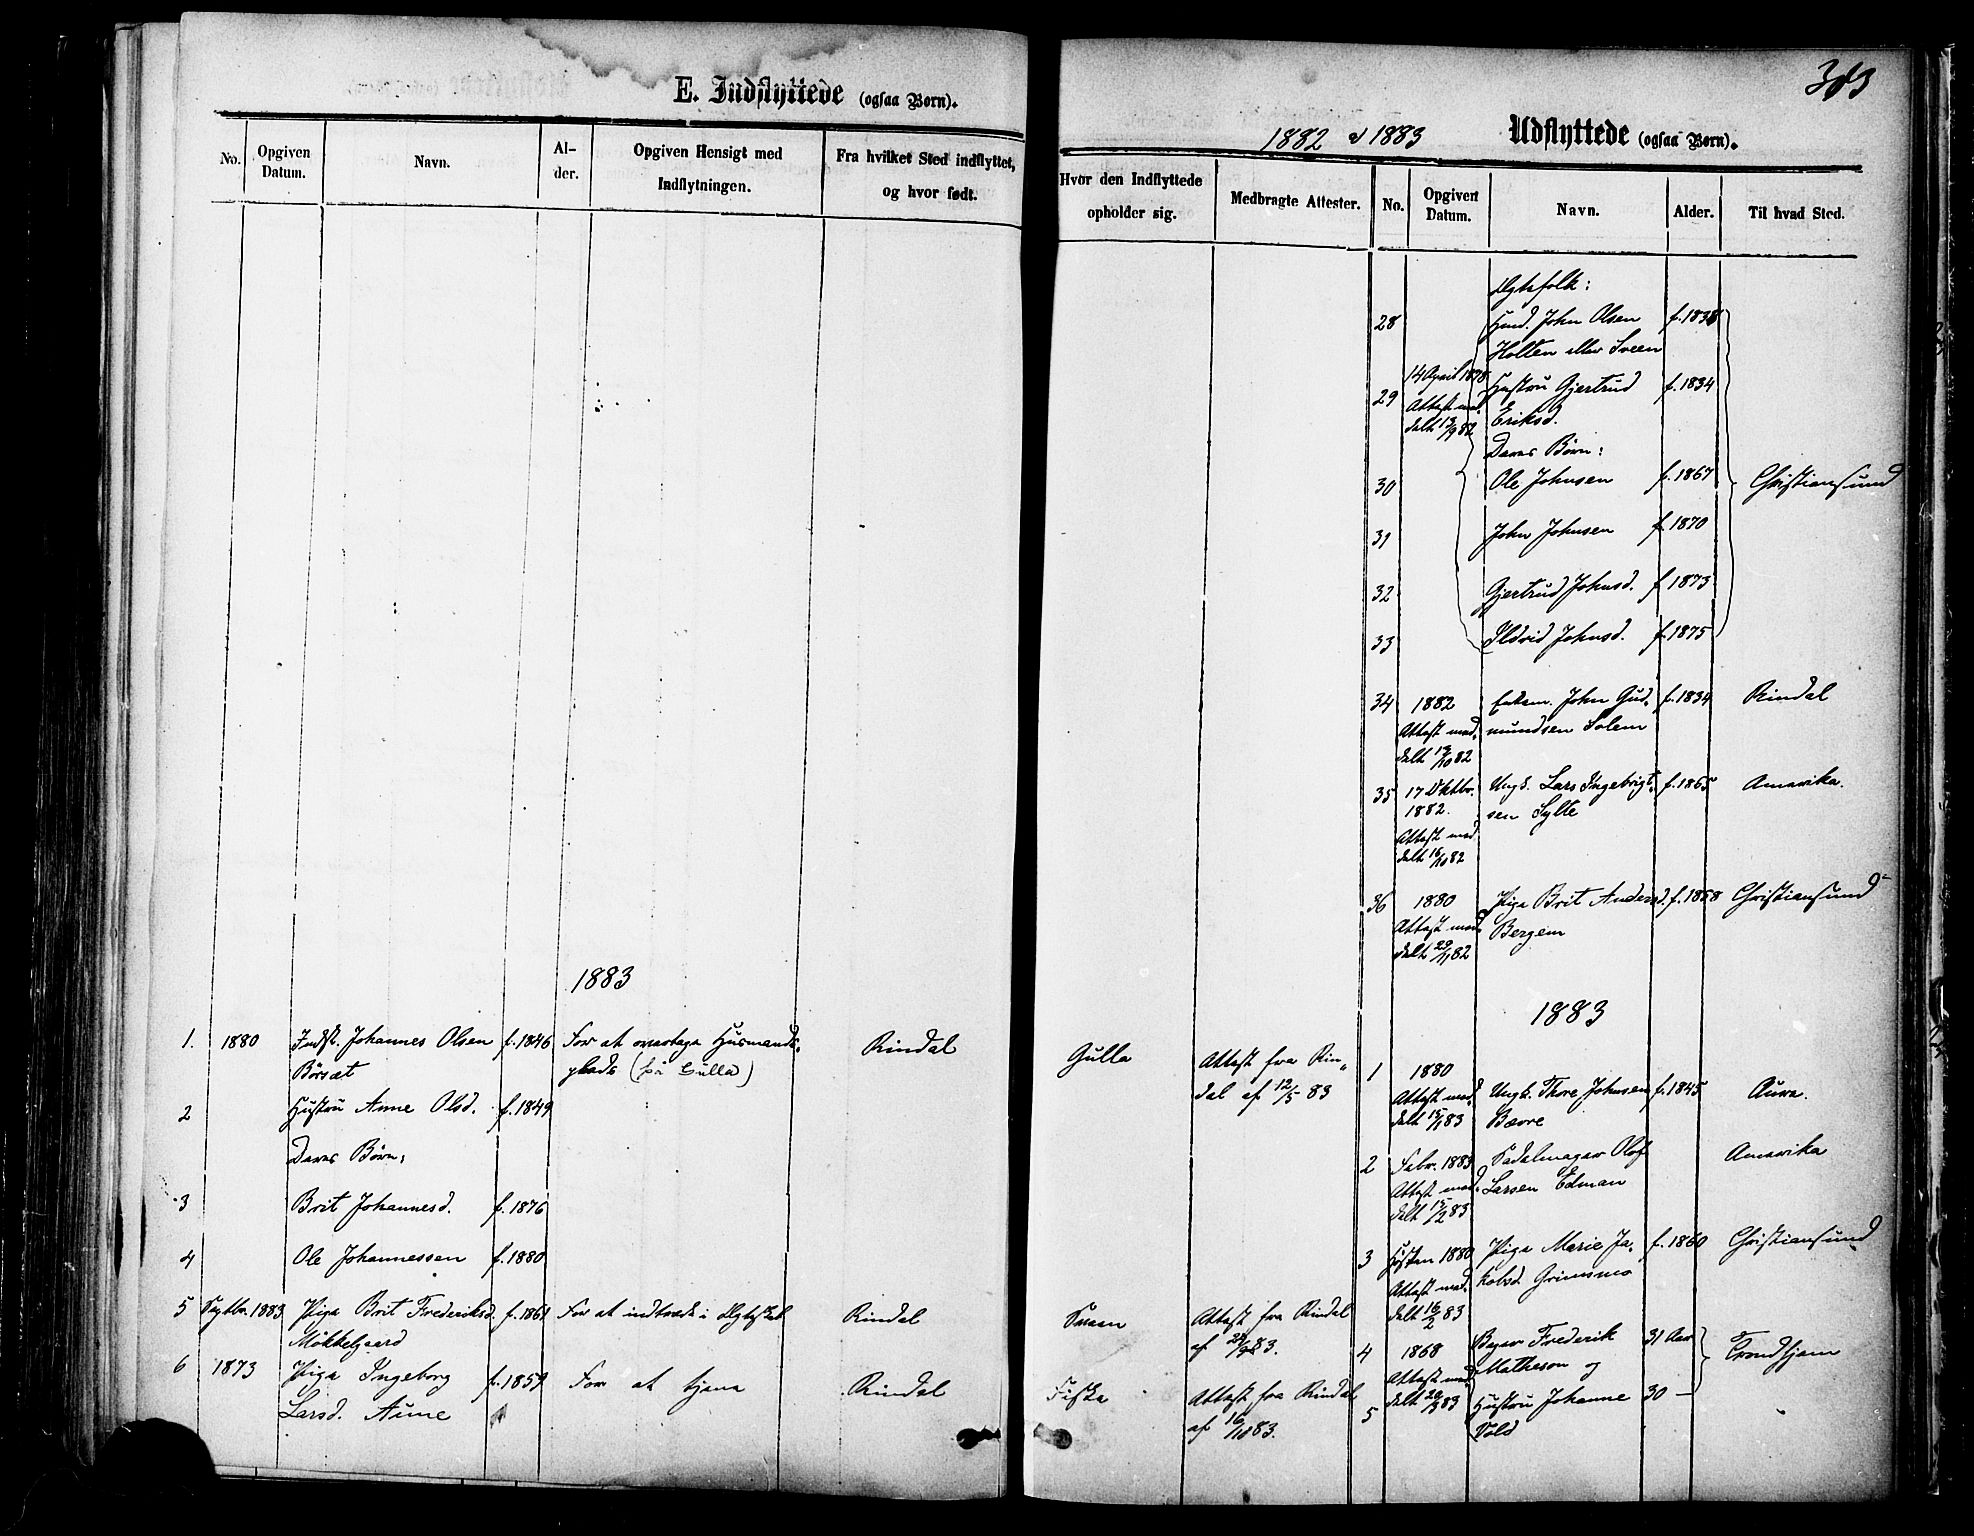 E. Indflyttede (ogsaa Børn).
No.
Opgiven Datum.
Navn.
Al-der.
Opgiven Hensigt med Indflytningen.
Fra hvilket Sted indflyttet, og hvor født.
1883
1. 1880 Indst. Johannes Olsen f. 1846 For at overtage Husmands- Rindal
Børsæt plads (på Gulla)
2 Hustru Anne Olsd. f. 1849
Deres Børn:
3 Brit Johannesd. f. 1876
4 Ole Johannessen f. 1880
5 Septbr. 1883 Pige Brit Frederiksd. f. 1861 For at indtræde i Ægteskab Rindal
Møkkelgaard
6 1873 Pige Ingeborg f. 1859 For at tjene Rindal
Larsd. Aune
383
1882 & 1883 Udflyttede (ogsaa Børn).
Hvor den Indflyttede opholder sig.
Medbragte Attester.
No.
Opgiven Datum.
Navn.
Alder.
Til hvad Sted.
Ægtefolk:
28 Husd. John Olsen f. 1838
Holten eller Sveen
14 April 1878
29 Hustru Gjertrud f. 1834
Attest med-
delt 13/9 82 Eriksd.
Deres Børn:
30 Ole Johnsen f. 1867 Christiansund
31 John Johnsen f. 1870
32 Gjertrud Johnsd. f. 1873
33 Ildrid Johnsd. f. 1875
34 1882 Enkem. John Gud- f. 1834 Rindal
Attest med- mundsen Solem
delt 13/10 82
35 17 Oktbr. Ungk. Lars Ingebrigt- f. 1865 Amerika.
1882. sen Sylte
Attest med
delt 16/10 82
36 1880 Pige Brit Andersd. f. 1858 Christiansund
Attest med- Bergem
delt 29/11 82
1883
Gulla Attest fra Rin-
dal af 12/5 83
1 1880
Attest med- Ungk. Thore Johnsen f. 1845 Aure.
delt 15/1 83 Bævre
2 Febr. 1883 Sadelmager Olof Amerika
Attest med- Larsen Edman
delt 15/2 83
3 Høsten 1880 Pige Marie Ja- f. 1860 Christiansund
Attest med- kobsd. Grimsmo
delt 16/2 83
Sveen Attest fra Rindal
af 29/9 83.
4 1868 Bager Frederik 31 Aar Trondhjem
Attest med- Matheson og
delt 20/3 83
5 Hustru Johanne 30 —
Vold
Fiske Attest fra Rindal
af 16/10 83.